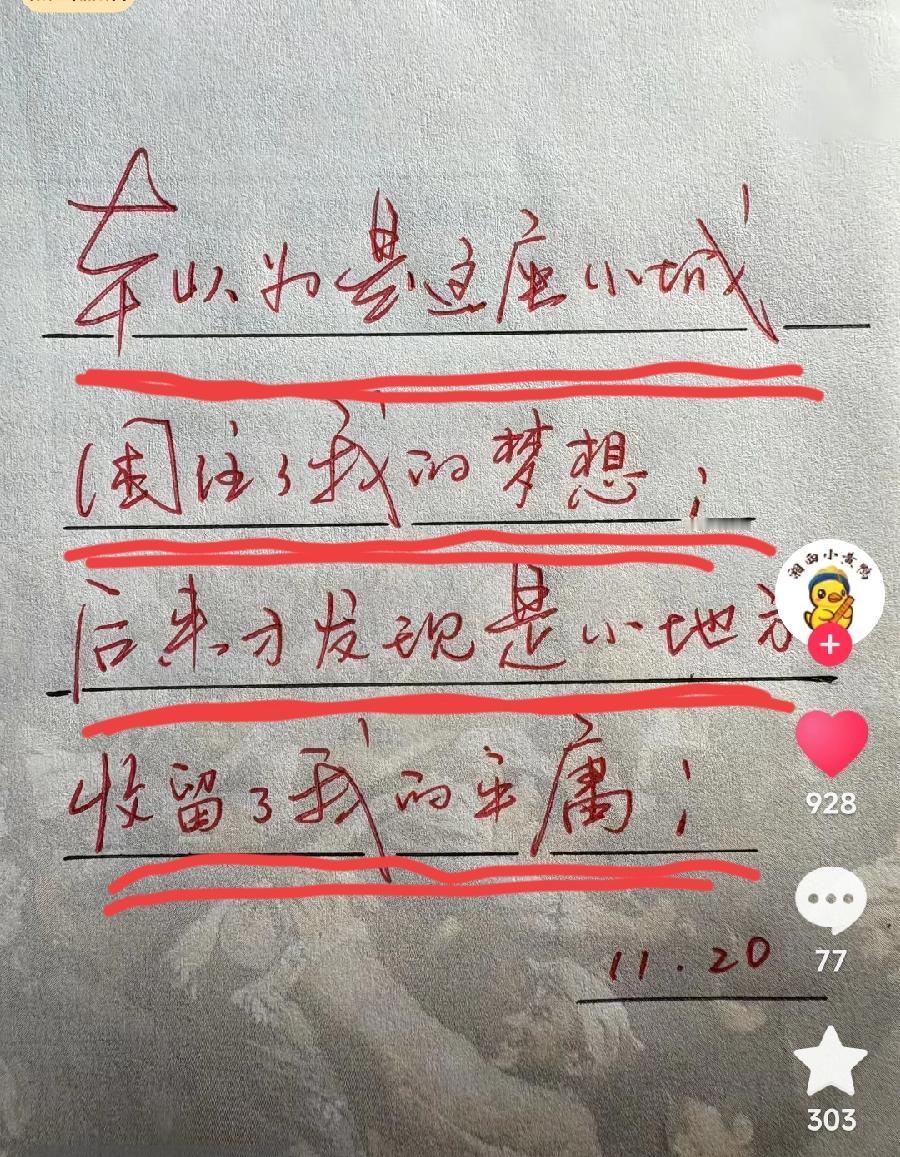 本以为是这座小城
困住了我的梦想；
后来才发现是小地方
收留了我的平庸；
11.20
湘西小黄鸭
928
77
303